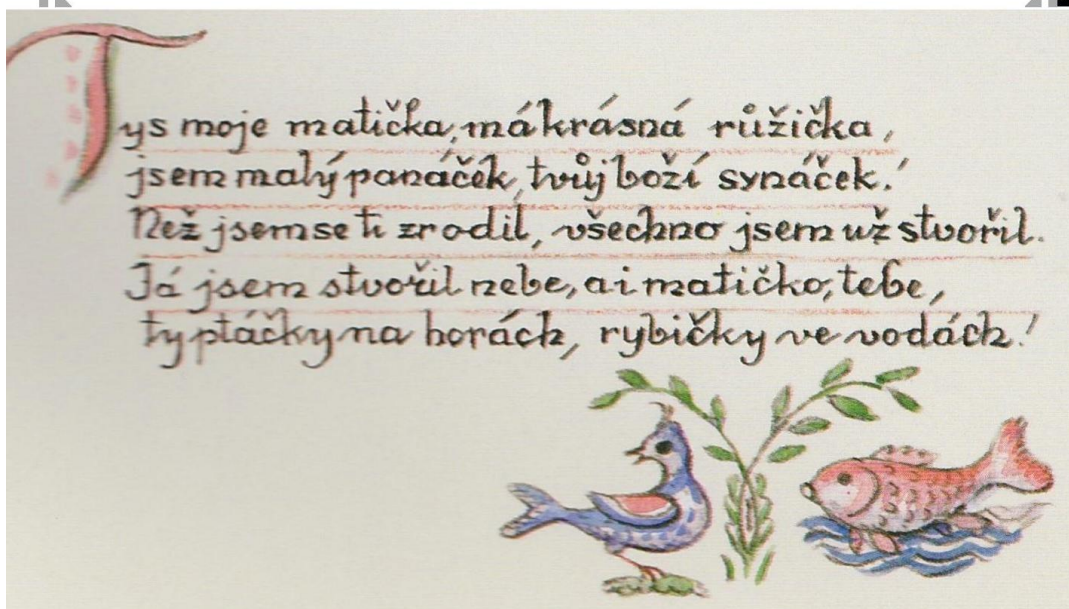 Tys moje matička, má krásná růžička,
jsem malý panáček, tvůj boží synáček!
Než jsem se ti zrodil, všechno jsem už stvořil.
Já jsem stvořil nebe, a i matičko, tebe,
ty ptáčky na horách, rybičky ve vodách!